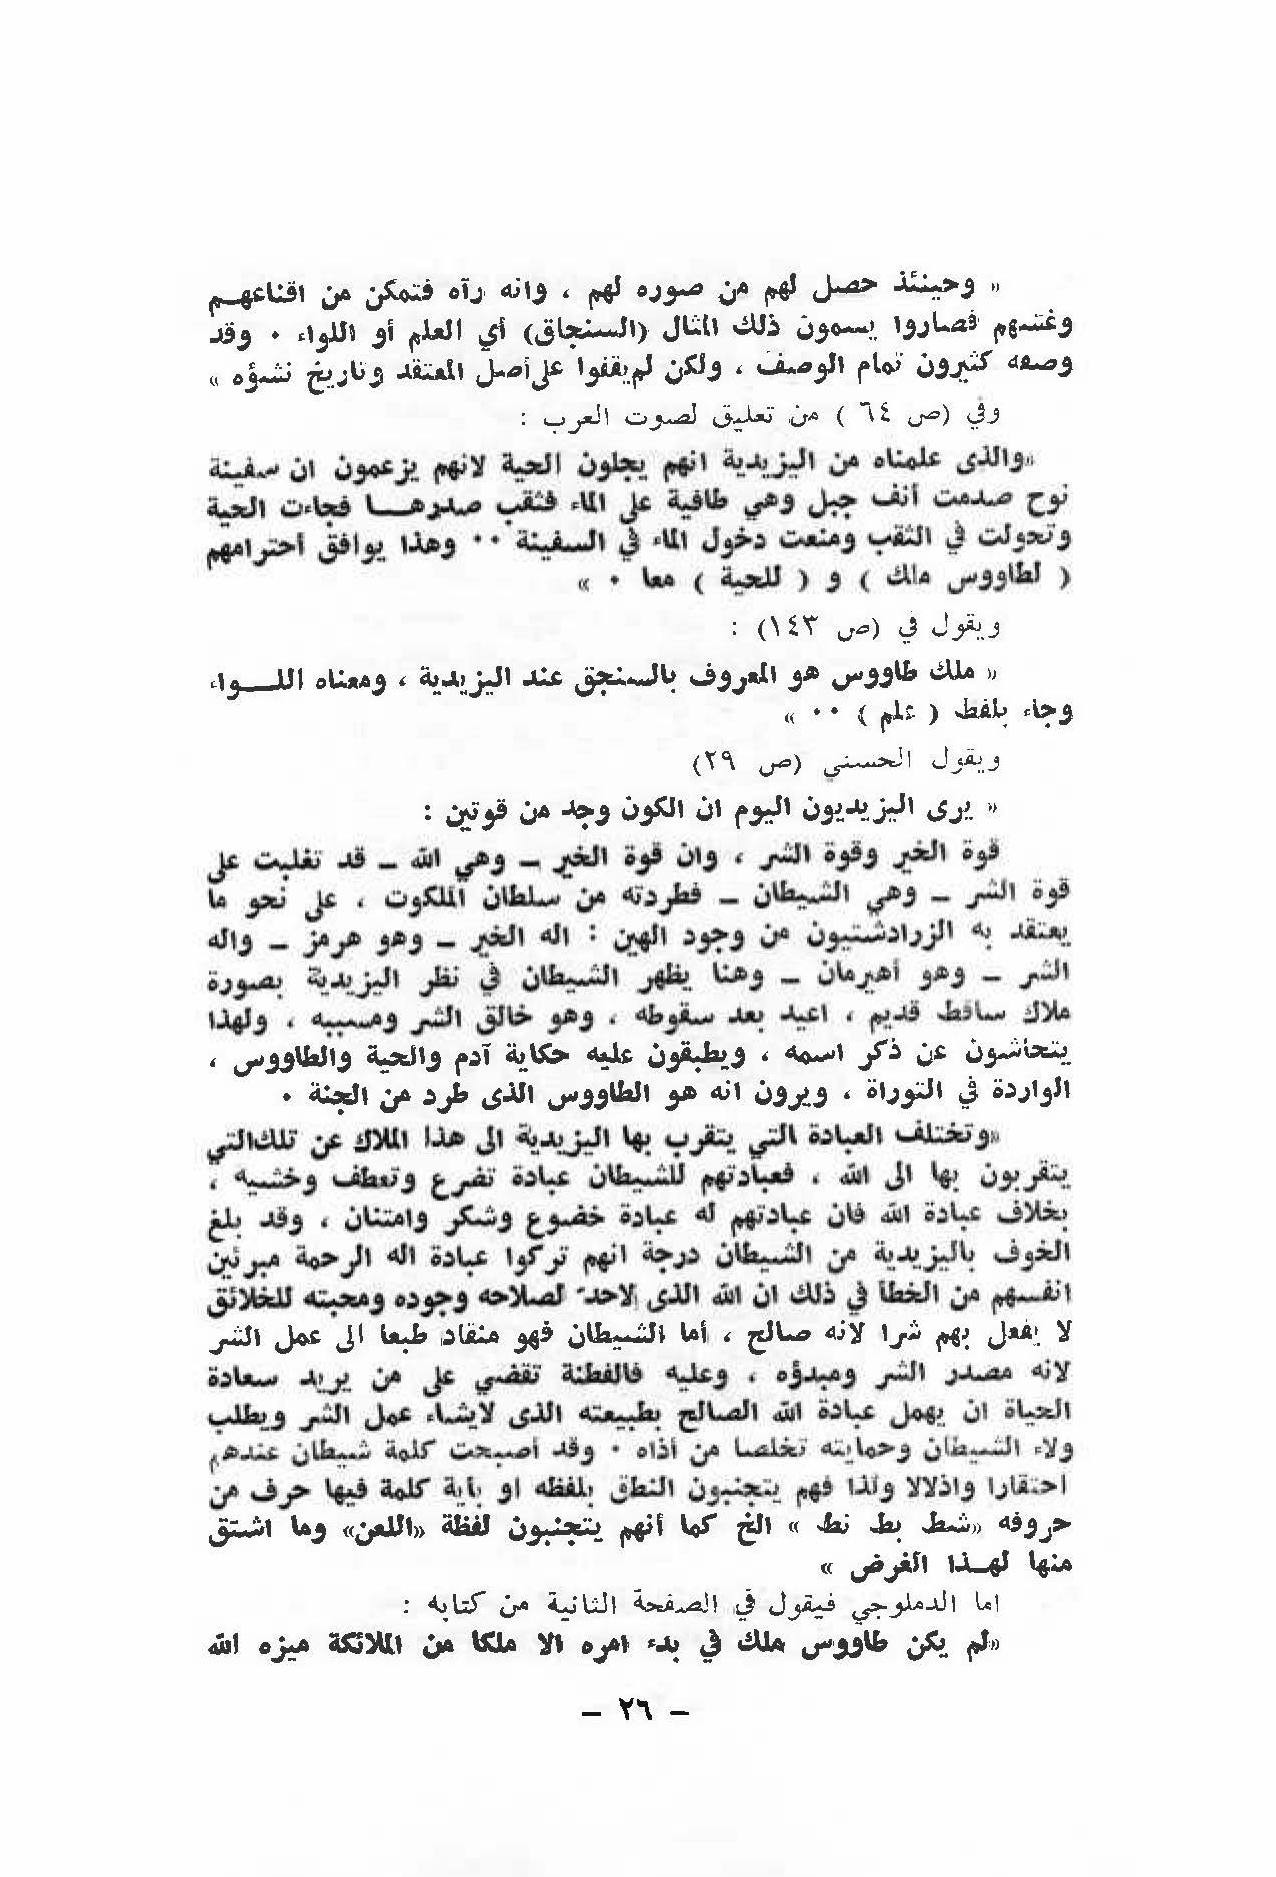 « وحينئذ حصل لهم من صوره لهم ، وانه رآه فتمكن من اقناعهـم
وغشهم فصاروا يسمون ذلك المثال (السنجاق) أي العلم أو اللواء ٠ وقد
وصفه كثيرون تمام الوصف ، ولكن لم يقفوا على أصل المعتقد وتاريخ نشؤه »
وفي (ص ٦٤ ) من تعليق لصوت العرب :
«والذى علمناه من اليزيدية انهم يجلون الحية لانهم يزعمون ان سفينة
نوح صدمت أنف جبل وهي طافية على الماء فثقب صدرهـــا فجاءت الحية
وتحولت في الثقب ومنعت دخول الماء في السفينة ٠٠ وهذا يوافق أحترامهم
( لطاووس ملك ) و ( للحية ) معا ٠ »
ويقول في (ص ١٤٣) :
« ملك طاووس هو المعروف بالسنجق عند اليزيدية ، ومعناه اللـــواء
وجاء بلفظ ( علم ) ٠٠ »
ويقول الحسني (ص ٢٩)
« يرى اليزيديون اليوم ان الكون وجد من قوتين :
قوة الخير وقوة الشر ، وان قوة الخير – وهي الله – قد تغلبت على
قوة الشر – وهي الشيطان – فطردته من سلطان الملكوت ، على نحو ما
يعتقد به الزرادشتيون من وجود الهين : اله الخير – وهو هرمز – واله
الشر – وهو أهيرمان – وهنا يظهر الشيطان في نظر اليزيدية بصورة
ملاك ساقط قديم ، اعيد بعد سقوطه ، وهو خالق الشر ومسببه ، ولهذا
يتحاشون عن ذكر اسمه ، ويطبقون عليه حكاية آدم والحية والطاووس ،
الواردة في التوراة ، ويرون انه هو الطاووس الذى طرد من الجنة ٠
«وتختلف العبادة التي يتقرب بها اليزيدية الى هذا الملاك عن تلك التي
يتقربون بها الى الله ، فعبادتهم للشيطان عبادة تضرع وتعطف وخشيه ،
بخلاف عبادة الله فان عبادتهم له عبادة خضوع وشكر وامتنان ، وقد بلغ
الخوف باليزيدية من الشيطان درجة انهم تركوا عبادة اله الرحمة مبرئين
انفسهم من الخطأ في ذلك ان الله الذى لاحد لصلاحه وجوده ومحبته للخلائق
لا يفعل بهم شرا لانه صالح ، أما الشيطان فهو منقاد طبعا الى عمل الشر
لانه مصدر الشر ومبدؤه ، وعليه فالفطنة تقضي على من يريد سعادة
الحياة ان يهمل عبادة الله الصالح بطبيعته الذى لايشاء عمل الشر ويطلب
ولاء الشيطان وحمايته تخلصا من أذاه ٠ وقد أصبحت كلمة شيطان عندهم
احتقارا واذلالا ولذا فهم يتجنبون النطق بلفظه او بأية كلمة فيها حرف من
حروفه «شط بط نط » الخ كما أنهم يتجنبون لفظة «اللعن» وما اشتق
منها لهـذا الغرض »
اما الدملوجي فيقول في الصفحة الثانية من كتابه :
«لم يكن طاووس ملك في بدء امره الا ملكا من الملائكة ميزه الله
– ٢٦ –